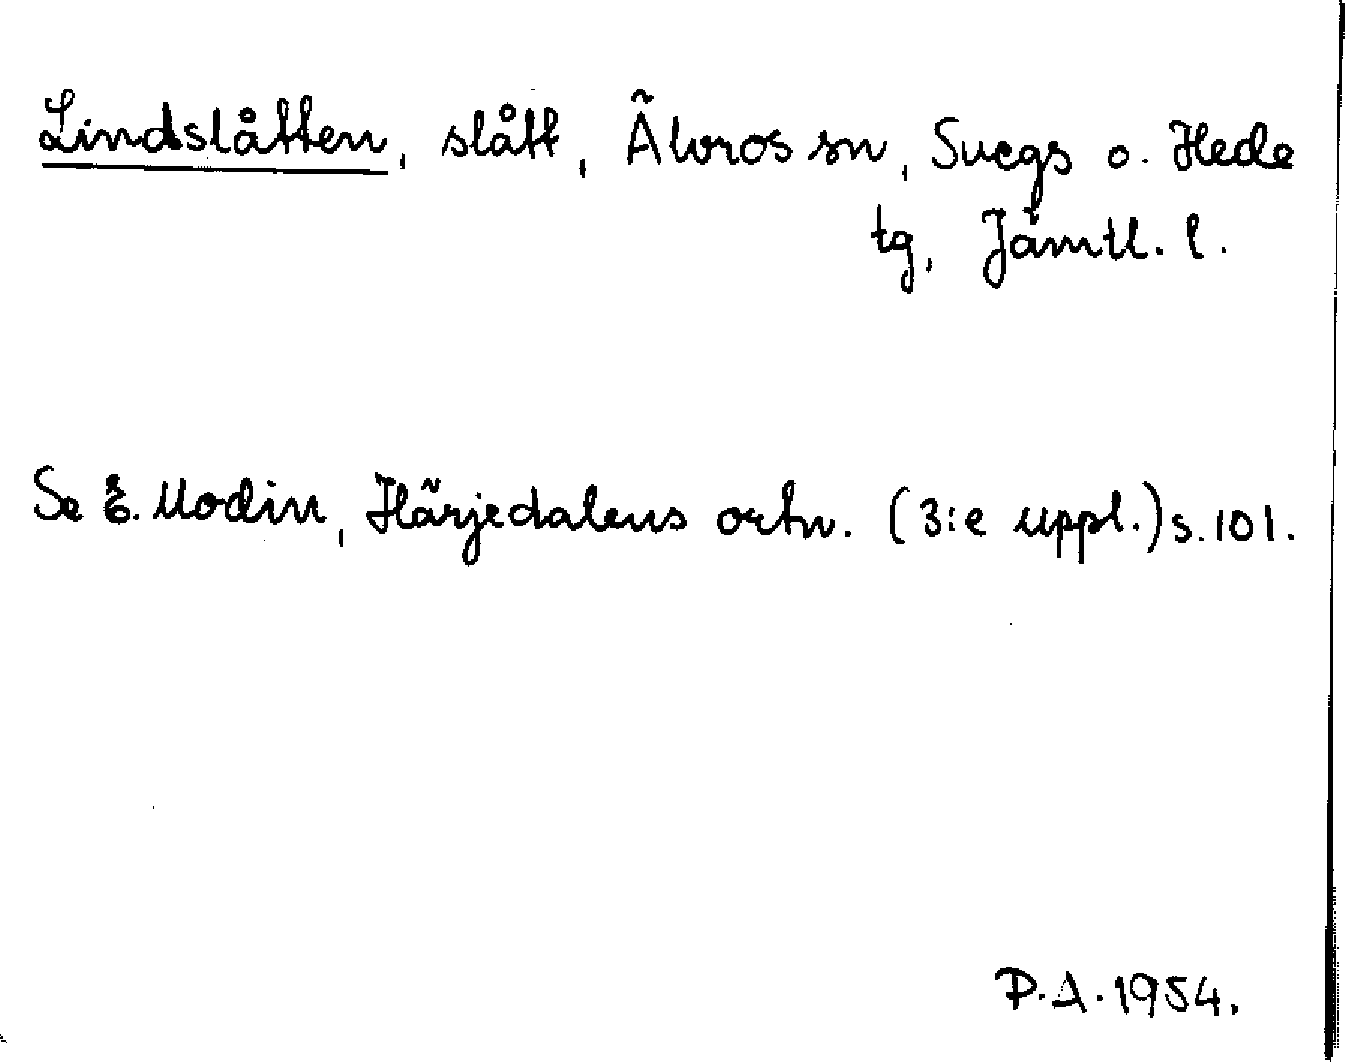 Lindslåtten, slått, Älvros sn, Svegs o. Hede
tg, Jämtl. l.
Se E. Modin, Härjedalens ortn. (3:e uppl.) s. 101.
P.A. 1954.